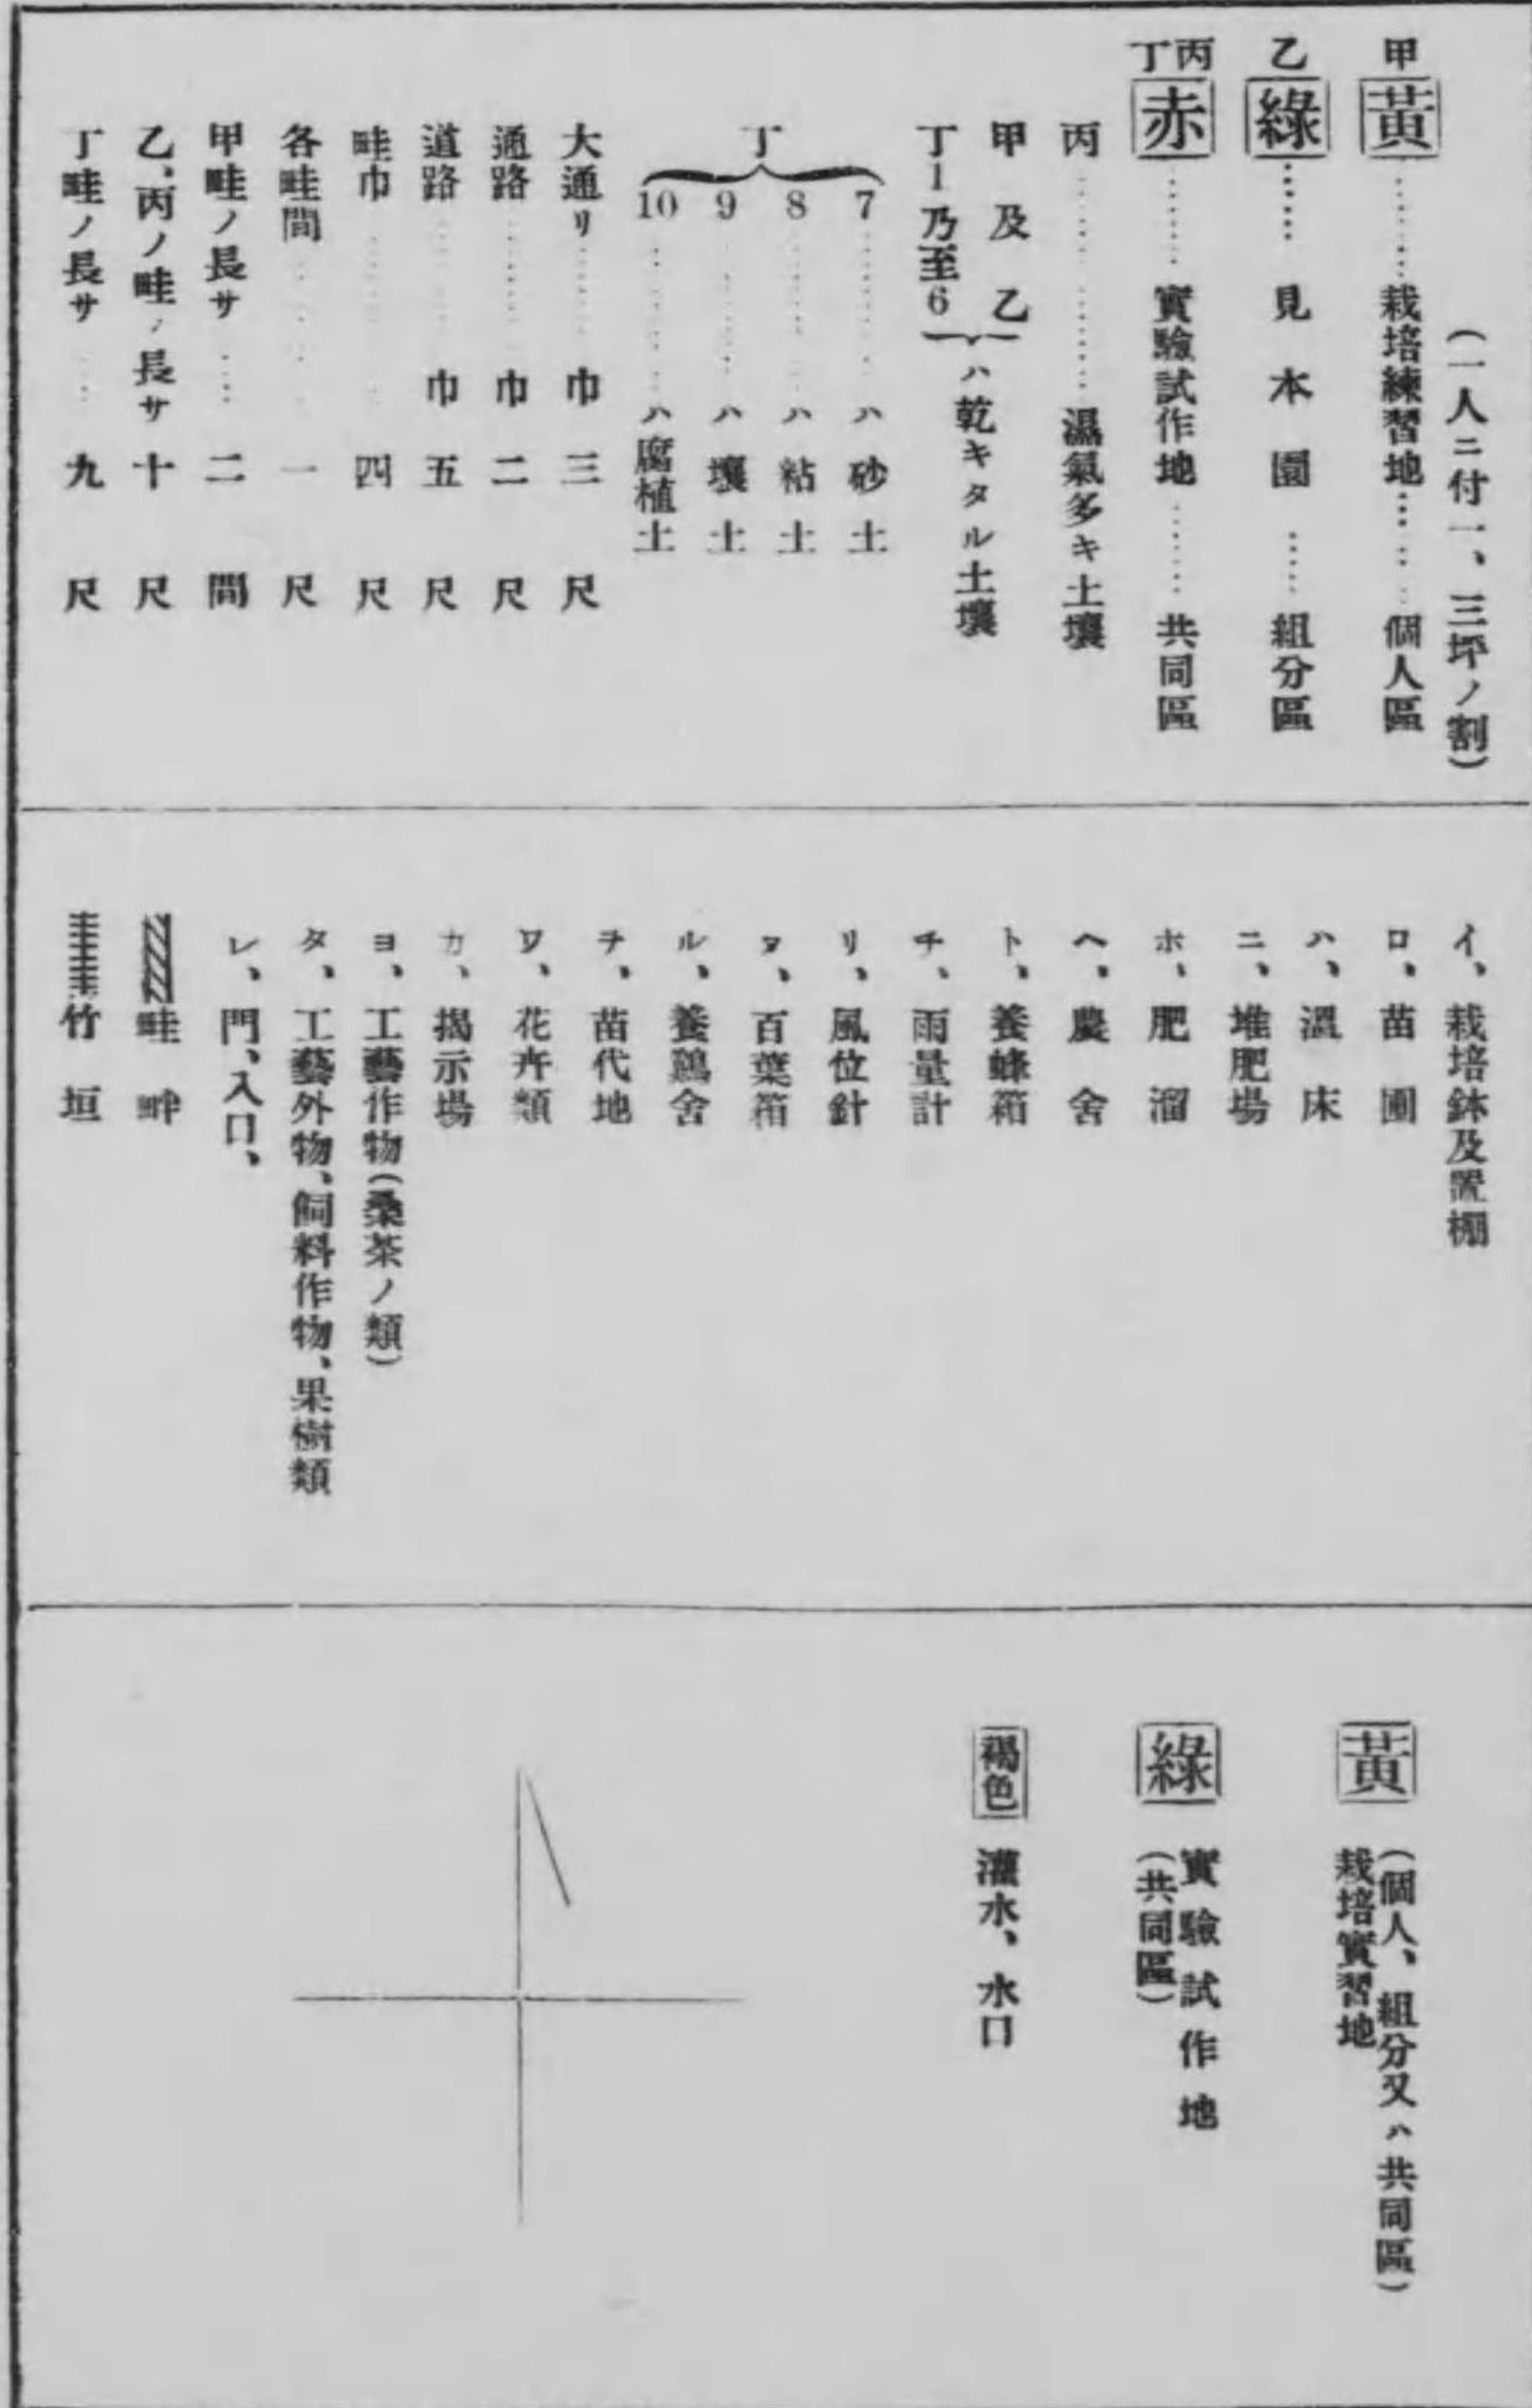 (一人ニ付一、三坪ノ割)
甲 黃 栽培練習地 個人區
乙 綠 見本園 組分區
丙丁 赤 實驗試作地 共同區
丙 濕氣多キ土壤
甲及乙
丁1乃至6
ハ乾キタル土壤
丁
7 ハ砂土
8 ハ粘土
9 ハ壤土
10 ハ腐植土
大通リ 巾三尺
通路 巾二尺
道路 巾五尺
畦巾 四尺
各畦間 一尺
甲畦ノ長サ 二間
乙、丙ノ畦ノ長サ 十尺
丁畦ノ長サ 九尺
イ、栽培鉢及置棚
ロ、苗圃
ハ、溫床
ニ、堆肥場
ホ、肥溜
ヘ、農舍
ト、養蜂箱
チ、雨量計
リ、風位針
ヌ、百葉箱
ル、養鷄舍
ヲ、苗代地
ワ、花卉類
カ、揭示場
ヨ、工藝作物(桑茶ノ類)
タ、工藝外物、飼料作物、果樹類
レ、門、入口、
畦畔
竹垣
黃
(個人、組分又ハ共同區)
栽培實習地
綠
實驗試作地
(共同區)
褐色 灌水、水口